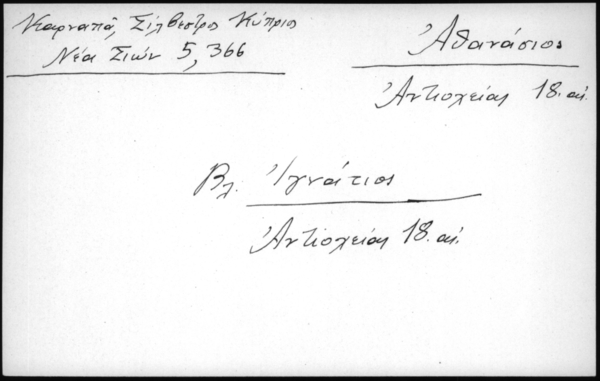 Καρναπᾶ, Σίλβεστρος Κύπριος
Νέα Σιών 5, 366
Ἀθανάσιος
Ἀντιοχείας 18. αἰ.
Βλ. Ἰγνάτιος
Ἀντιοχείας 18. αἰ.